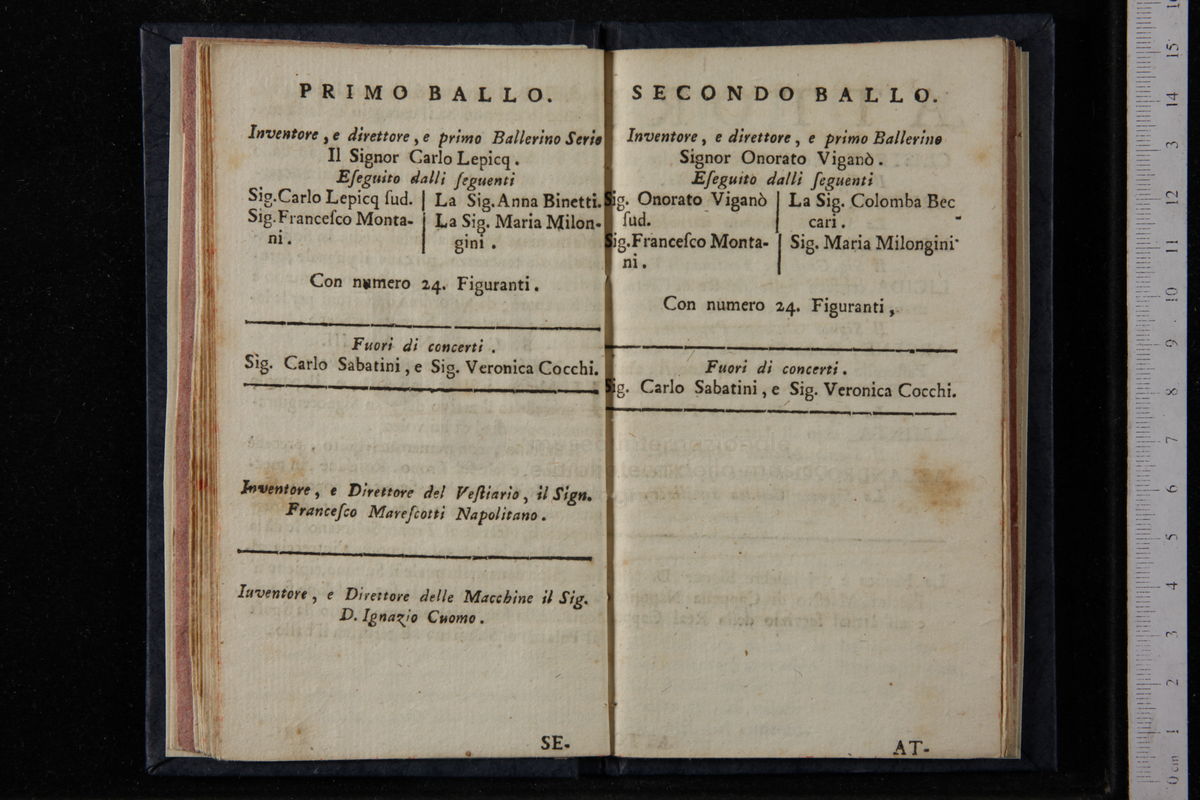 PRIMO BALLO.
Inventore, e direttore, e primo Ballerino Serio
Il Signor Carlo Lepicq.
Eſeguito dalli ſeguenti
Sig. Carlo Lepicq ſud. | La Sig. Anna Binetti.
Sig. Franceſco Monta- | La Sig. Maria Milon-
ni. | gini.
Con numero 24. Figuranti.
Fuori di concerti.
Sig. Carlo Sabatini, e Sig. Veronica Cocchi.
Inventore, e Direttore del Veſtiario, il Sign.
Franceſco Mareſcotti Napolitano.
Iuventore, e Direttore delle Macchine il Sig.
D. Ignazio Cuomo.
SE-
SECONDO BALLO.
Inventore, e direttore, e primo Ballerino
Signor Onorato Viganò.
Eſeguito dalli ſeguenti
Sig. Onorato Viganò | La Sig. Colomba Bec-
ſud. | cari.
Sig. Franceſco Monta- | Sig. Maria Milongini
ni.
Con numero 24. Figuranti,
Fuori di concerti.
Sig. Carlo Sabatini, e Sig. Veronica Cocchi.
AT-
0 cm 1 2 3 4 5 6 7 8 9 10 11 12 13 14 15 16